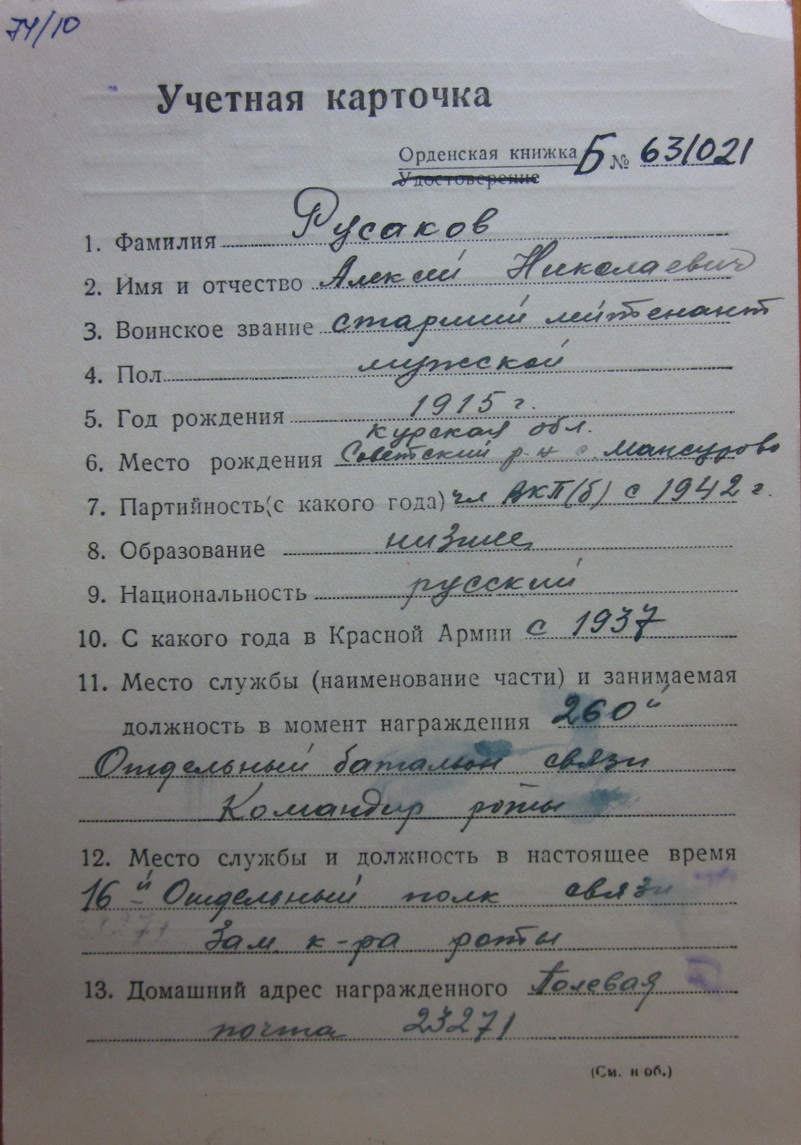 74/10
Учетная карточка
Орденская книжка Б № 631021
Удостоверение
1. Фамилия Русаков
2. Имя и отчество Алексей Николаевич
3. Воинское звание старший лейтенант
4. Пол мужской
5. Год рождения 1915 г.
Курская обл.
6. Место рождения Советский р-н с. Мансурово
7. Партийность (с какого года) чл ВКП(б) с 1942 г.
8. Образование низшее
9. Национальность русский
10. С какого года в Красной Армии с 1937
11. Место службы (наименование части) и занимаемая
должность в момент награждения 260й
Отдельный батальон связи
Командир роты
12. Место службы и должность в настоящее время
16-й Отдельный полк связи
Зам к-ра роты
13. Домашний адрес награжденного Полевая
почта 23271
(См. н об.)